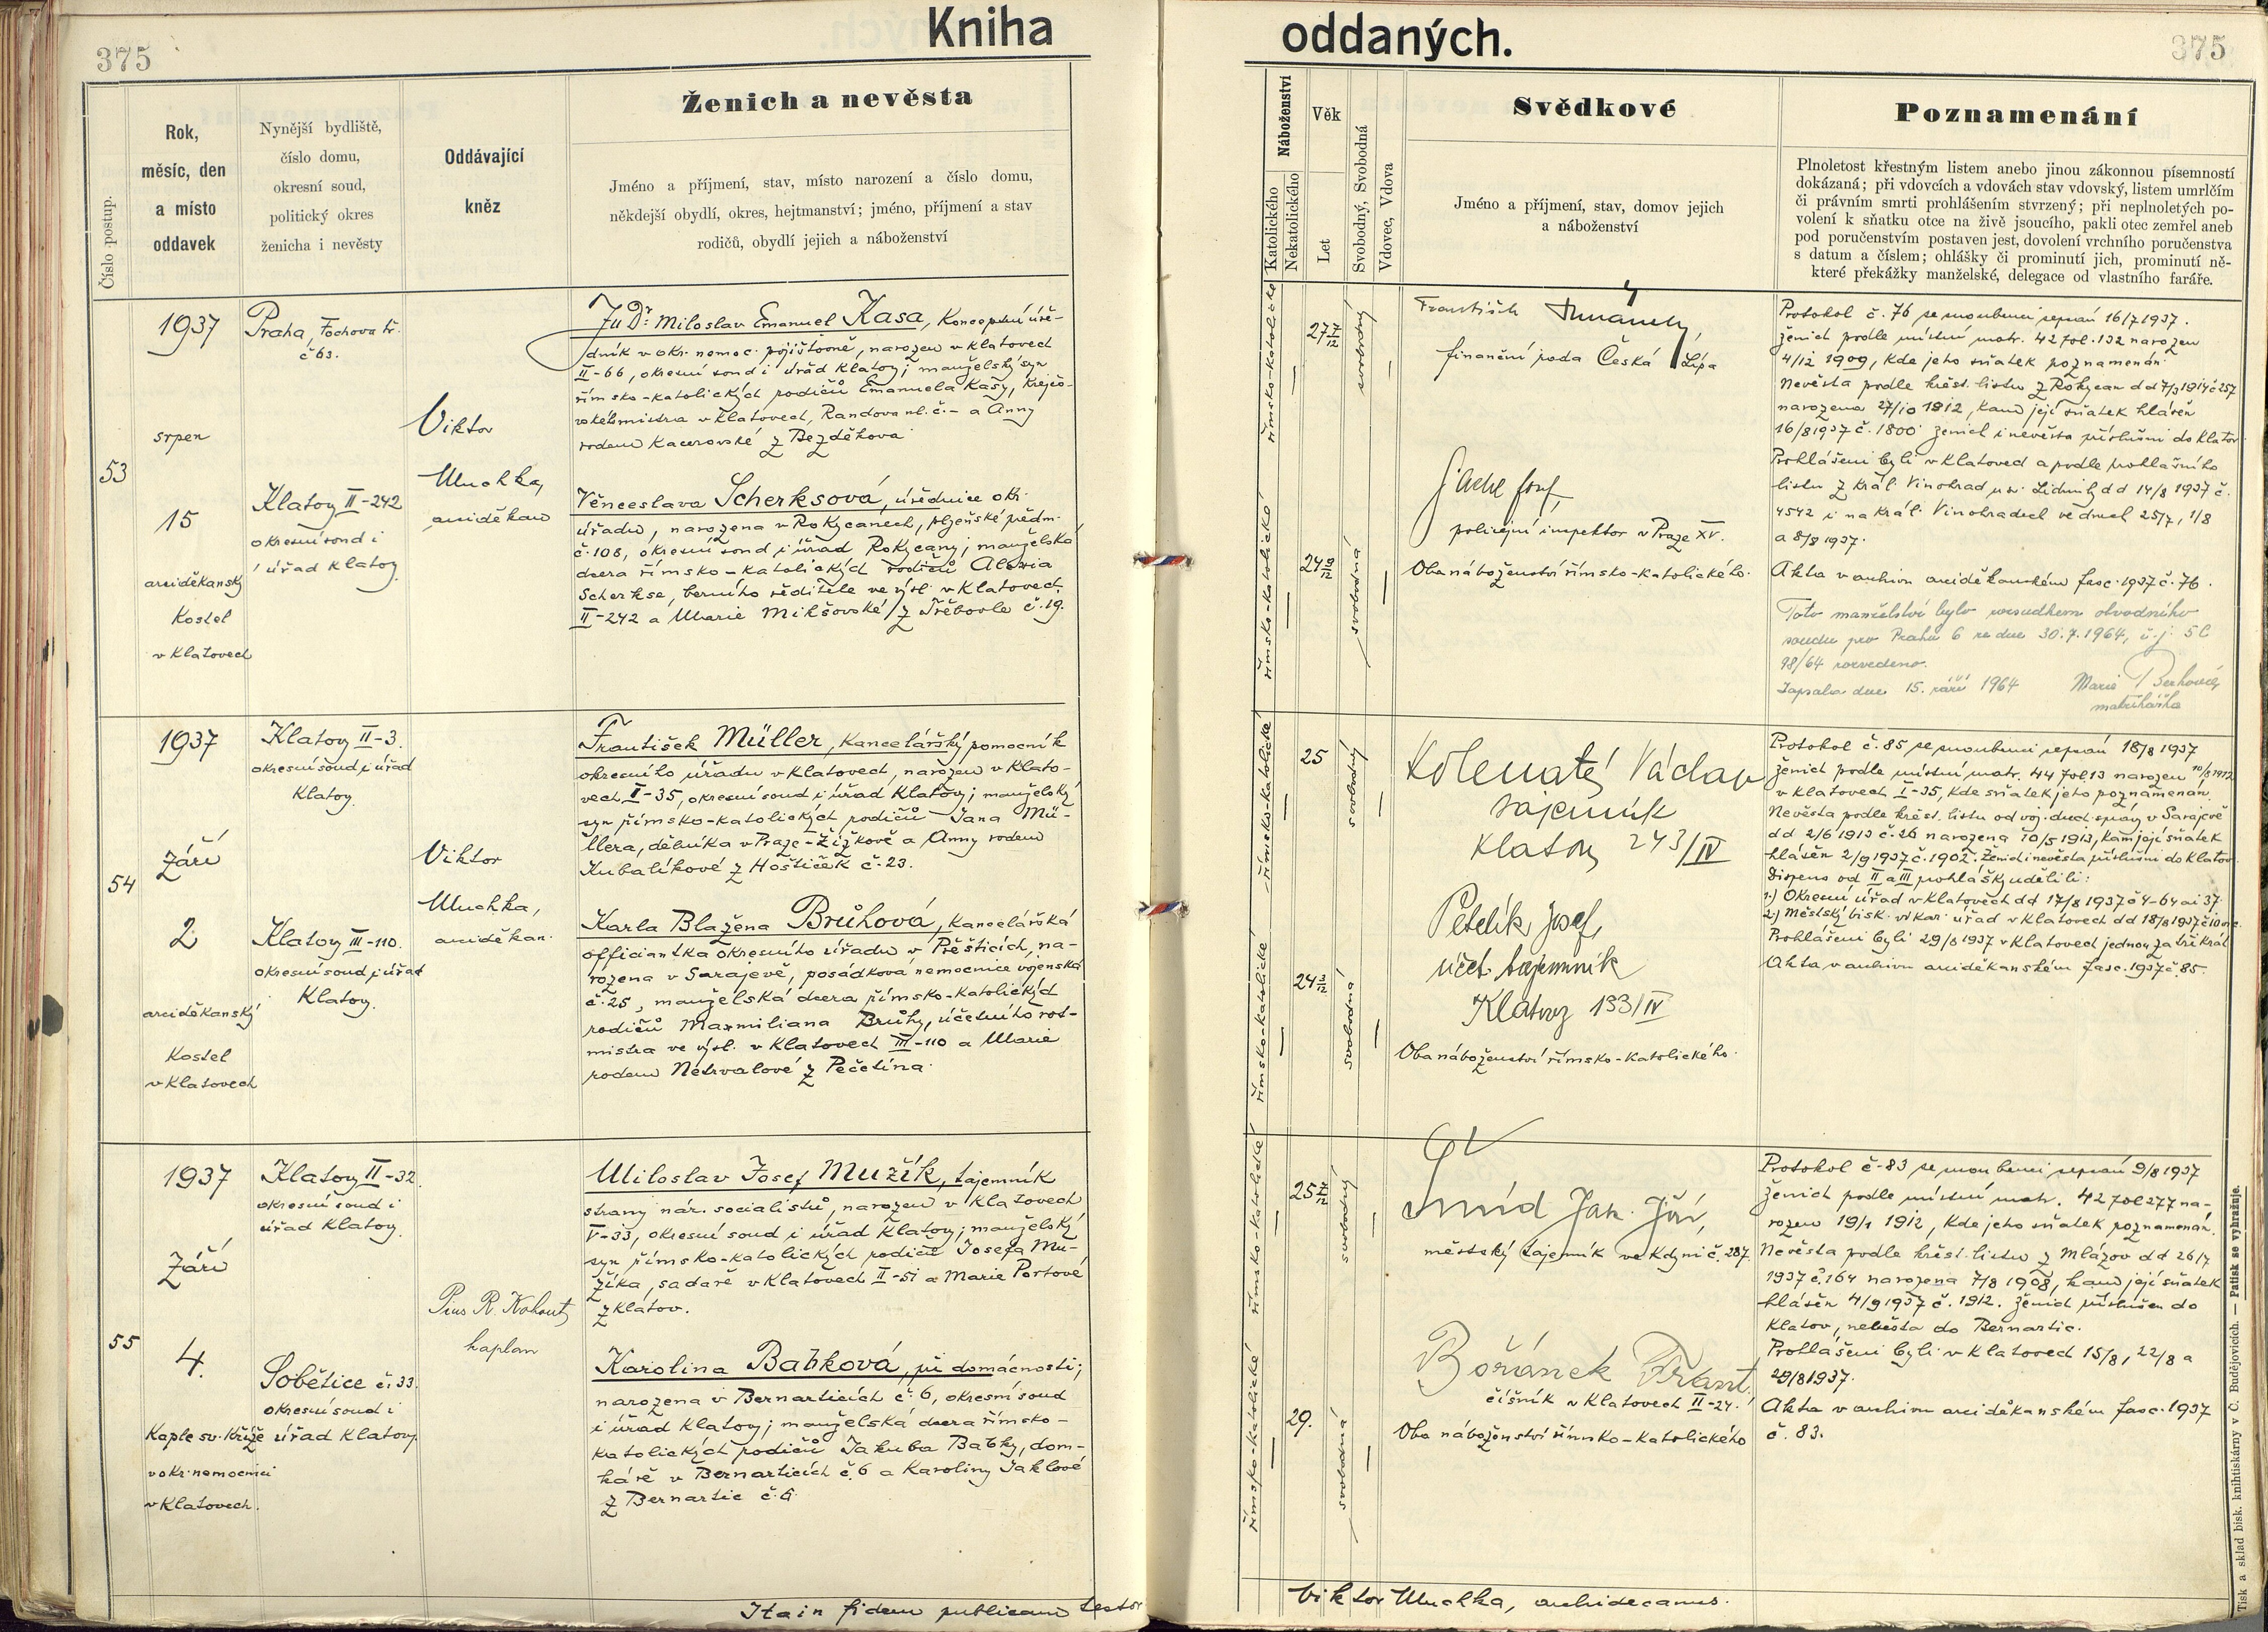 375
Kniha
oddaných.
375
Číslo postup.
Rok,
měsíc, den
a místo
oddavek
Nynější bydliště,
číslo domu,
okresní soud,
politický okres
ženicha i nevěsty
Oddávající
kněz
Ženich a nevěsta
Jméno a příjmení, stav, místo narození a číslo domu,
někdejší obydlí, okres, hejtmanství; jméno, příjmení a stav
rodičů, obydlí jejich a náboženství
Náboženství
Katolického
Nekatolického
Věk
Let
Svobodný, Svobodná
Vdovec, Vdova
Svědkové
Jméno a příjmení, stav, domov jejich
a náboženství
Poznamenání
Plnoletost křestným listem anebo jinou zákonnou písemností
dokázaná; při vdovcích a vdovách stav vdovský, listem umrlčím
či právním smrti prohlášením stvrzený; při neplnoletých po-
volení k sňatku otce na živě jsoucího, pakli otec zemřel aneb
pod poručenstvím postaven jest, dovolení vrchního poručenstva
s datum a číslem; ohlášky či prominutí jich, prominutí ně-
které překážky manželské, delegace od vlastního faráře.
53
1937
srpen
15
arciděkanský
kostel
v Klatovech
Praha, Fochova tř.
č 63.
Klatovy II-242
okresní soud i
úřad Klatovy
Viktor
Muchka,
arciděkan
JuDr Miloslav Emanuel Kasa, koncepční úře-
dník v okr. nemoc. pojišťovně, narozen v Klatovech
II-66, okresní soud i úřad Klatovy; manželský syn
římsko-katolických rodičů Emanuela Kasy, krejčo-
vského mistra v Klatovech, Randova ul. č.- a Anny
rodem Kacerovské z Bezděkova
Věnceslava Scherksová, úřednice okr.
úřadu, narozena v Rokycanech, plzeňské předm.
č.108, okresní soud i úřad Rokycany; manželská
dcera římsko-katolických rodičů Aloisia
Scherkse, berního ředitele ve výsl. v Klatovech
II-242 a Marie Mikšovské z Třebovle č.19.
římsko-katolické
27 7/12
svobodný
římsko-katolické
24 10/12
svobodná
František
finanční rada Česká Lípa
Josef,
policejní inspektor v Praze XV.
Oba náboženství římsko-katolického.
Protokol č. 76 se snoubenci sepsán 16/7 1937.
Ženich podle místní matr. 42 fol. 132 narozen
4/12 1909, kde jeho sňatek poznamenán
Nevěsta podle křest. listu z Rokycan dd 7/3 1914 č 257
narozena 27/10 1912, kam její sňatek hlášen
16/8 1937 č. 1800. Ženich i nevěsta příslušní do Klatov
Prohlášeni byli v Klatovech a podle prohlašního
listu z Král. Vinohrad u sv. Lidmily dd 14/8 1937 č.
4542 i na Král. Vinohradech ve dnech 25/7, 1/8
a 8/8 1937.
Akta v archivu arciděkanském fasc. 1937 č. 76.
Toto manželství bylo rozsudkem obvodního
soudu pro Prahu 6 ze dne 30.7.1964, č.j. 5 C
98/64 rozvedeno.
Zapsala dne 15. září 1964 Marie
matrikářka
54
1937
září
2
arciděkanský
kostel
v Klatovech
Klatovy II-3.
okresní soud i úřad
Klatovy.
Klatovy III-110.
okresní soud i úřad
Klatovy.
Viktor
Muchka,
arciděkan.
František Müller, kancelářský pomocník
okresního úřadu v Klatovech, narozen v Klato-
vech I-35, okresní soud i úřad Klatovy; manželský
syn římsko-katolických rodičů Jana Mü-
llera, dělníka v Praze-Žižkově a Anny rodem
Kubalíkové z Hoštiček č.23.
Karla Blažena Brůhová, kancelářská
officiantka okresního úřadu v Přešticích, na-
rozena v Sarajevě, posádková nemocnice vojenská
č.25, manželská dcera římsko-katolických
rodičů Maxmiliana Brůhy, účetního rot-
mistra ve výsl. v Klatovech III-110 a Marie
rodem Netrvalové z Pečetína.
římsko-katolické
25
svobodný
římsko-katolické
24 3/12
svobodná
Kolenatý Václav
tajemník
Klatovy 243/IV
Petelík Josef,
účet. tajemník
Klatovy 133/IV
Oba náboženství římsko-katolického.
Protokol č. 85 se snoubenci sepsán 18/8 1937
Ženich podle místní matr. 44 fol 13 narozen 10/8 1912
v Klatovech I-35, kde sňatek jeho poznamenán.
Nevěsta podle křest. listu od voj. duch. správy v Sarajevě
dd 2/6 1913 č. 26 narozena 10/5 1913, kam její sňatek
hlášen 2/9 1937 č. 1902. Ženich i nevěsta příslušni do Klatov.
Dispens od II a III prohlášky udělili:
1.) Okresní úřad v Klatovech dd 17/8 1937 č 4-64 ai 37.
2.) Městský bisk. vikar. úřad v Klatovech dd 18/8 1937
Prohlášeni byli 29/8 1937 v Klatovech jednou za třikrát
Akta v archivu arciděkanském fasc. 1937 č. 85.
55
1937
Září
4.
Kaple sv. Kříže
v okr. nemocnici
v Klatovech.
Klatovy II-32.
okresní soud i
úřad Klatovy.
Sobětice č. 33.
okresní soud i
úřad Klatovy.
Pius R. Kohout
kaplan
Miloslav Josef Mužík, tajemník
strany nár. socialistů, narozen v Klatovech
V-33, okresní soud i úřad Klatovy; manželský
syn římsko-katolických rodičů Josefa Mu-
žíka, sadaře v Klatovech II-51 a Marie Portové
z Klatov.
Karolina Babková, při domácnosti;
narozena v Bernarticích č. 6, okresní soud
i úřad Klatovy; manželská dcera římsko-
katolických rodičů Jakuba Babky, dom-
káře v Bernarticích č.6 a Karoliny Jaklové
z Bernartic č.6.
římsko-katolické
25
svobodný
římsko-katolické
29.
svobodná
Šmíd Jan Jiří,
městský tajemník ve Kdyni č. 287.
Bořánek Frant.
číšník v Klatovech II-24.
Oba náboženství římsko-katolického
Protokol č. 83 se snoubenci sepsán 9/8 1937
Ženich podle místní matr. 42 fol 277 na-
rozen 19/1 1912, kde jeho sňatek poznamenán.
Nevěsta podle křest. listu z Mlázov dd 26/7
1937 č. 164 narozena 7/8 1908, kam její sňatek
hlášen 4/9 1937 č. 1912. Ženich příslušen do
Klatov, nevěsta do Bernartic.
Prohlášeni byli v Klatovech 15/8, 22/8 a
29/8 1937.
Akta v archivu arciděkanském fasc. 1937
č. 83.
Ita in fidem publicam testor
Viktor Muchka, archidecanus.
Tisk a sklad bisk. knihtiskárny v Č. Budějovicích. — Patisk se vyhražuje.